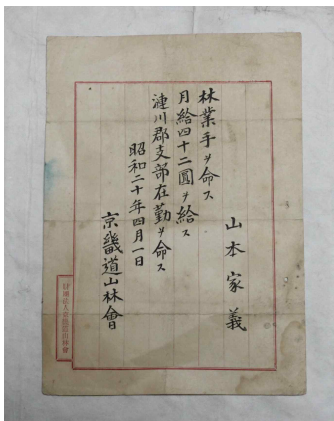 山本家義
林業手ヲ命ス
月給四十二圓ヲ給ス
漣川郡支部在勤ヲ命ス
昭和二十年四月一日
京畿道山林會